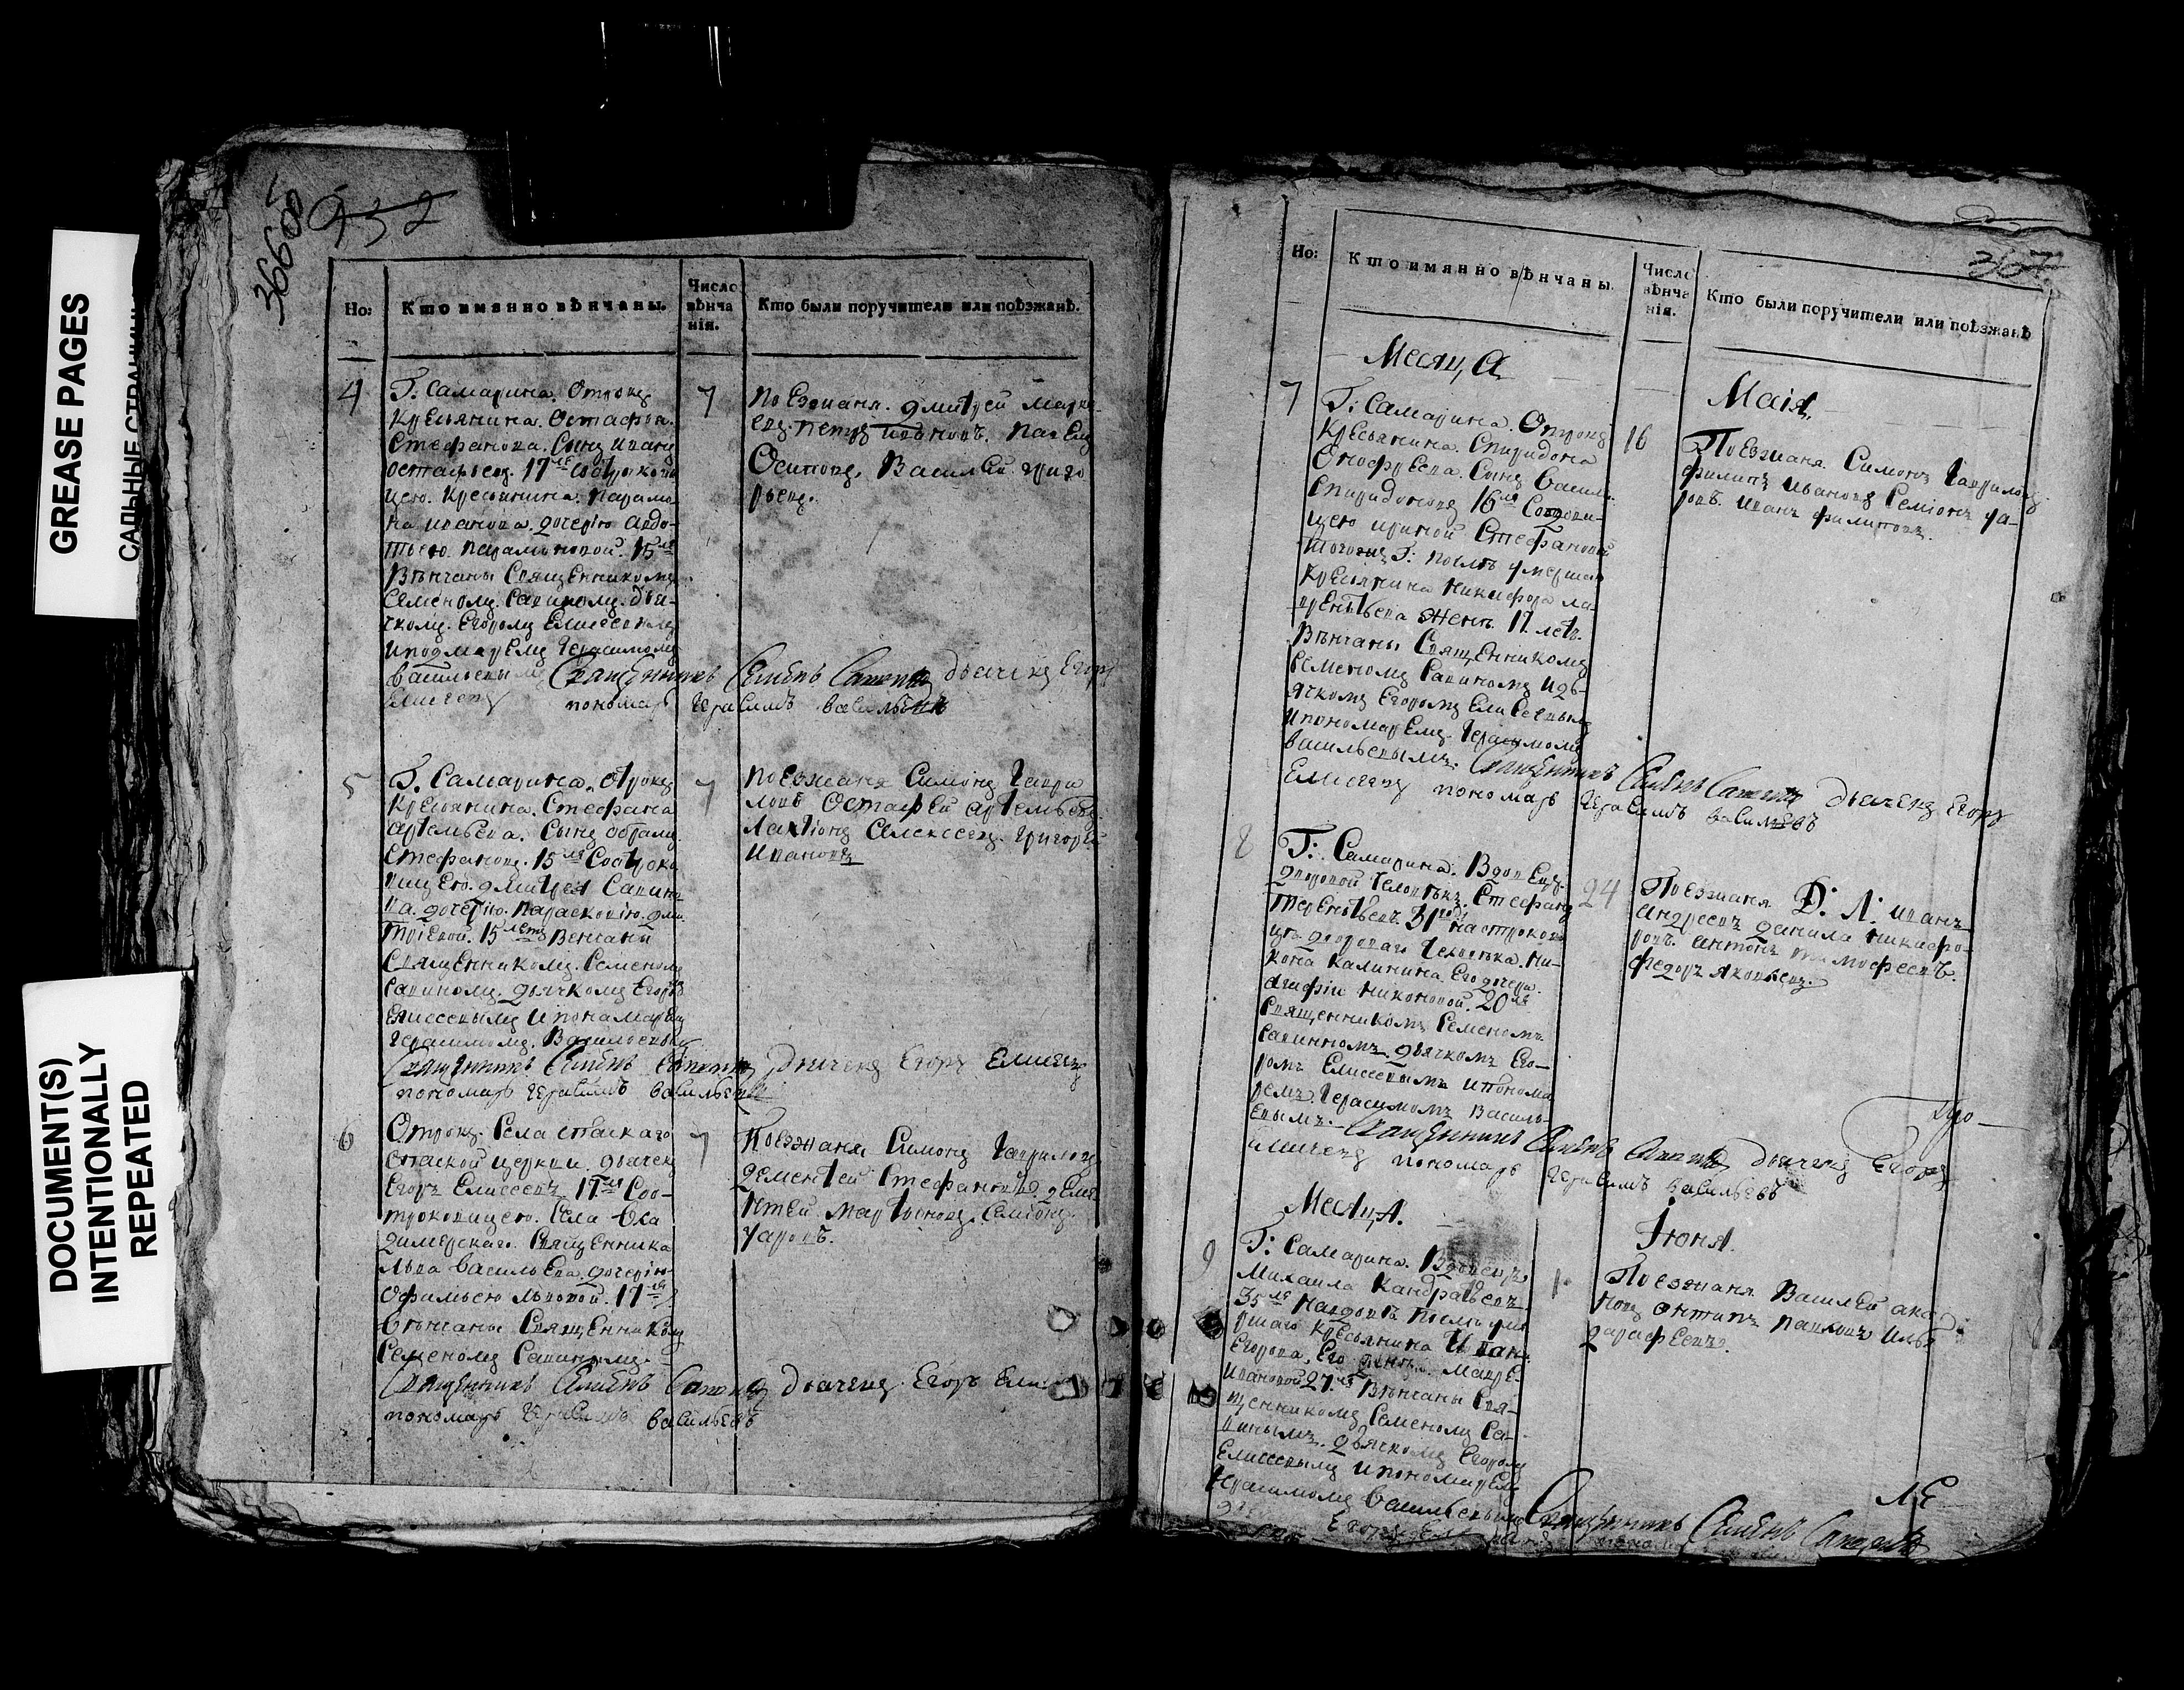 GREASE PAGES
САЛЬНЫЕ СТРАНИЦЫ
DOCUMENT(S)
INTENTIONALLY
REPEATED
366 об
932
Но:
Кто имянно вѣнчаны.
Число
вѣнча
нія.
Кто были поручители или поѣзжанѣ.
4
Г. Самарина. Отрокъ
Крестьянина. Остафья.
Стефанова. Сынъ Иванъ
Остафьевъ. 17 ле Соотрокови
цею. Крестьянина. Парамо
на иванова. дочерію авдо-
тьею. парамоновой. 15 ле
Вѣнчаны Священникомъ
Семеномъ. Савинымъ. дья-
чкомъ. Егоромъ Елисеевымъ
ипономаремъ Герасимомъ
васильевымъ Священникъ Семенъ Савинъ дьячекъ Егоръ
Елисеевъ пономарь Герасимъ васильевъ
7
поезжаня. дмитрей марко
евъ. петръ ивановъ. павелъ
Осиповъ, Василей григо
рьевъ.
5
Г. Самарина. отрокъ
Крестьянина. Стефана
артемьева. Сынъ
Стефановъ. 15 ле Соотроко
вицею. дмитрея Савино
ва. дочерію. парасковію. дми
тріевой. 15 летъ Венчаны
Священникомъ. Семеномъ
Савиномъ. дьячкомъ Егоромъ
Елисеевымъ ипонамаремъ
Герасимомъ. Васильевымъ
Священникъ Семенъ Савинъ дьячекъ Егоръ Елисеевъ
пономарь Герасимъ васильевъ
7
поезжаня Симонъ Гаври
ловъ Остафей артемьевъ
Лактіонъ Алексеевъ. григорей
Ивановъ
6
Отрокъ. Села спаскаго
спаской церкви. дьячекъ
Егоръ Елисеевъ. 17 ле Соо-
троковицею. Села
димерскаго. Священника
льва васильева. дочерію
офимьею львовой. 17 ле
вѣнчаны Священникомъ
Семеномъ Савинымъ.
Священникъ Семенъ Савинъ дьячекъ Егоръ Ели
пономарь Герасимъ васильевъ
7
Поезжаня Симонъ Гавриловъ
дементей Стефановъ. деме
нтей мартыновъ. Семіонъ
Уаровъ.
367
Но:
Кто имянно вѣнчаны.
Число
вѣнча
нія.
Кто были поручители или поѣзжанѣ
Месяца
Маія.
7
Г: Самарина. Отрокъ
Крестьянина. Спиридона
Онофреева. Сынъ васили
Спиридоновъ 16 ле Совдови-
цею ириной Стефановой
тогожъ Г: послѣ умершаго
Крестьянина Никифора ла
врентьева женѣ. 17. летъ.
Вѣнчаны Священникомъ
Семеномъ Савиномъ идь-
ячкомъ Егоромъ Елисеевымъ
ипономаремъ. Герасимомъ
васильевымъ. Священникъ Семенъ Савинъ дьячекъ Егоръ
Елисеевъ пономарь Герасимъ васильевъ
16
Поезжаня. Симонъ Гавриловъ
филипъ ивановъ Семіонъ уа-
ровъ. иванъ филиповъ.
8
Г: Самарина. Вдовецъ.
дворовой человѣкъ. Стефанъ
терентьевъ. 31 года наотрокови
цѣ дворового человѣка. Ни-
кона Калинина. Его дочери.
агафіи никоновой. 20 ле
Священникомъ Семеномъ
Савинномъ. дьячкомъ Его-
ромъ Елисеевымъ ипонома
ремъ. Герасимомъ василь-
евымъ. Священникъ Семенъ Савинъ дьячекъ Егоръ
Елисеевъ пономарь Герасимъ васильевъ
24
Поезжаня Д: Л: иванъ
андреевъ данила никифо-
ровъ. антонъ тимофеевъ.
федоръ яковлевъ.
Месяца.
Іюня.
9
Г: Самарина. Вдовецъ
Михаила Кандратьевъ
35 ле навдовѣ послѣ уме
ршаго крестьянина Иван
Егорова. Его женѣ. мавре
ивановой 27 ле Вѣнчаны Свя-
щенникомъ Семеномъ Са-
винымъ. дьячкомъ Егоромъ
Елисеевымъ ипономаремъ
Герасимомъ васильевымъ Священникъ Семенъ Савинъ
1
Поезжаня. Василей
антипъ павловъ илья
дарафеевъ.